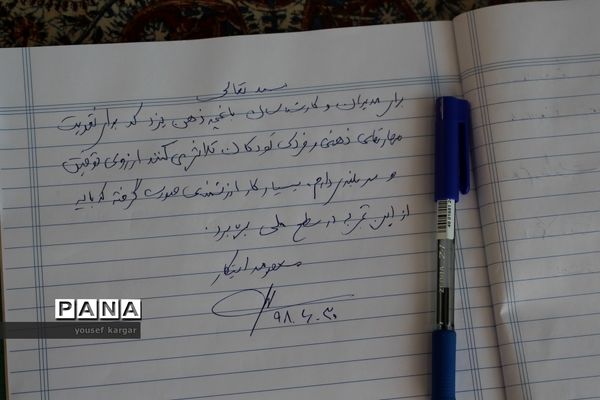 بسمه تعالی
برای مدیران و کارشناسان باغچه ذهن یزد که برای تقویت
مهارتهای ذهنی و فردی کودکان تلاش می کنند ارزوی توفیق
و سربلندی دارم. بسیار کار ارزشمندی صورت گرفته که باید
از این تجربه در سطح ملی بهره برد.
ابتکار
۹۸.۶.۳۰
PANA
yousef kargar